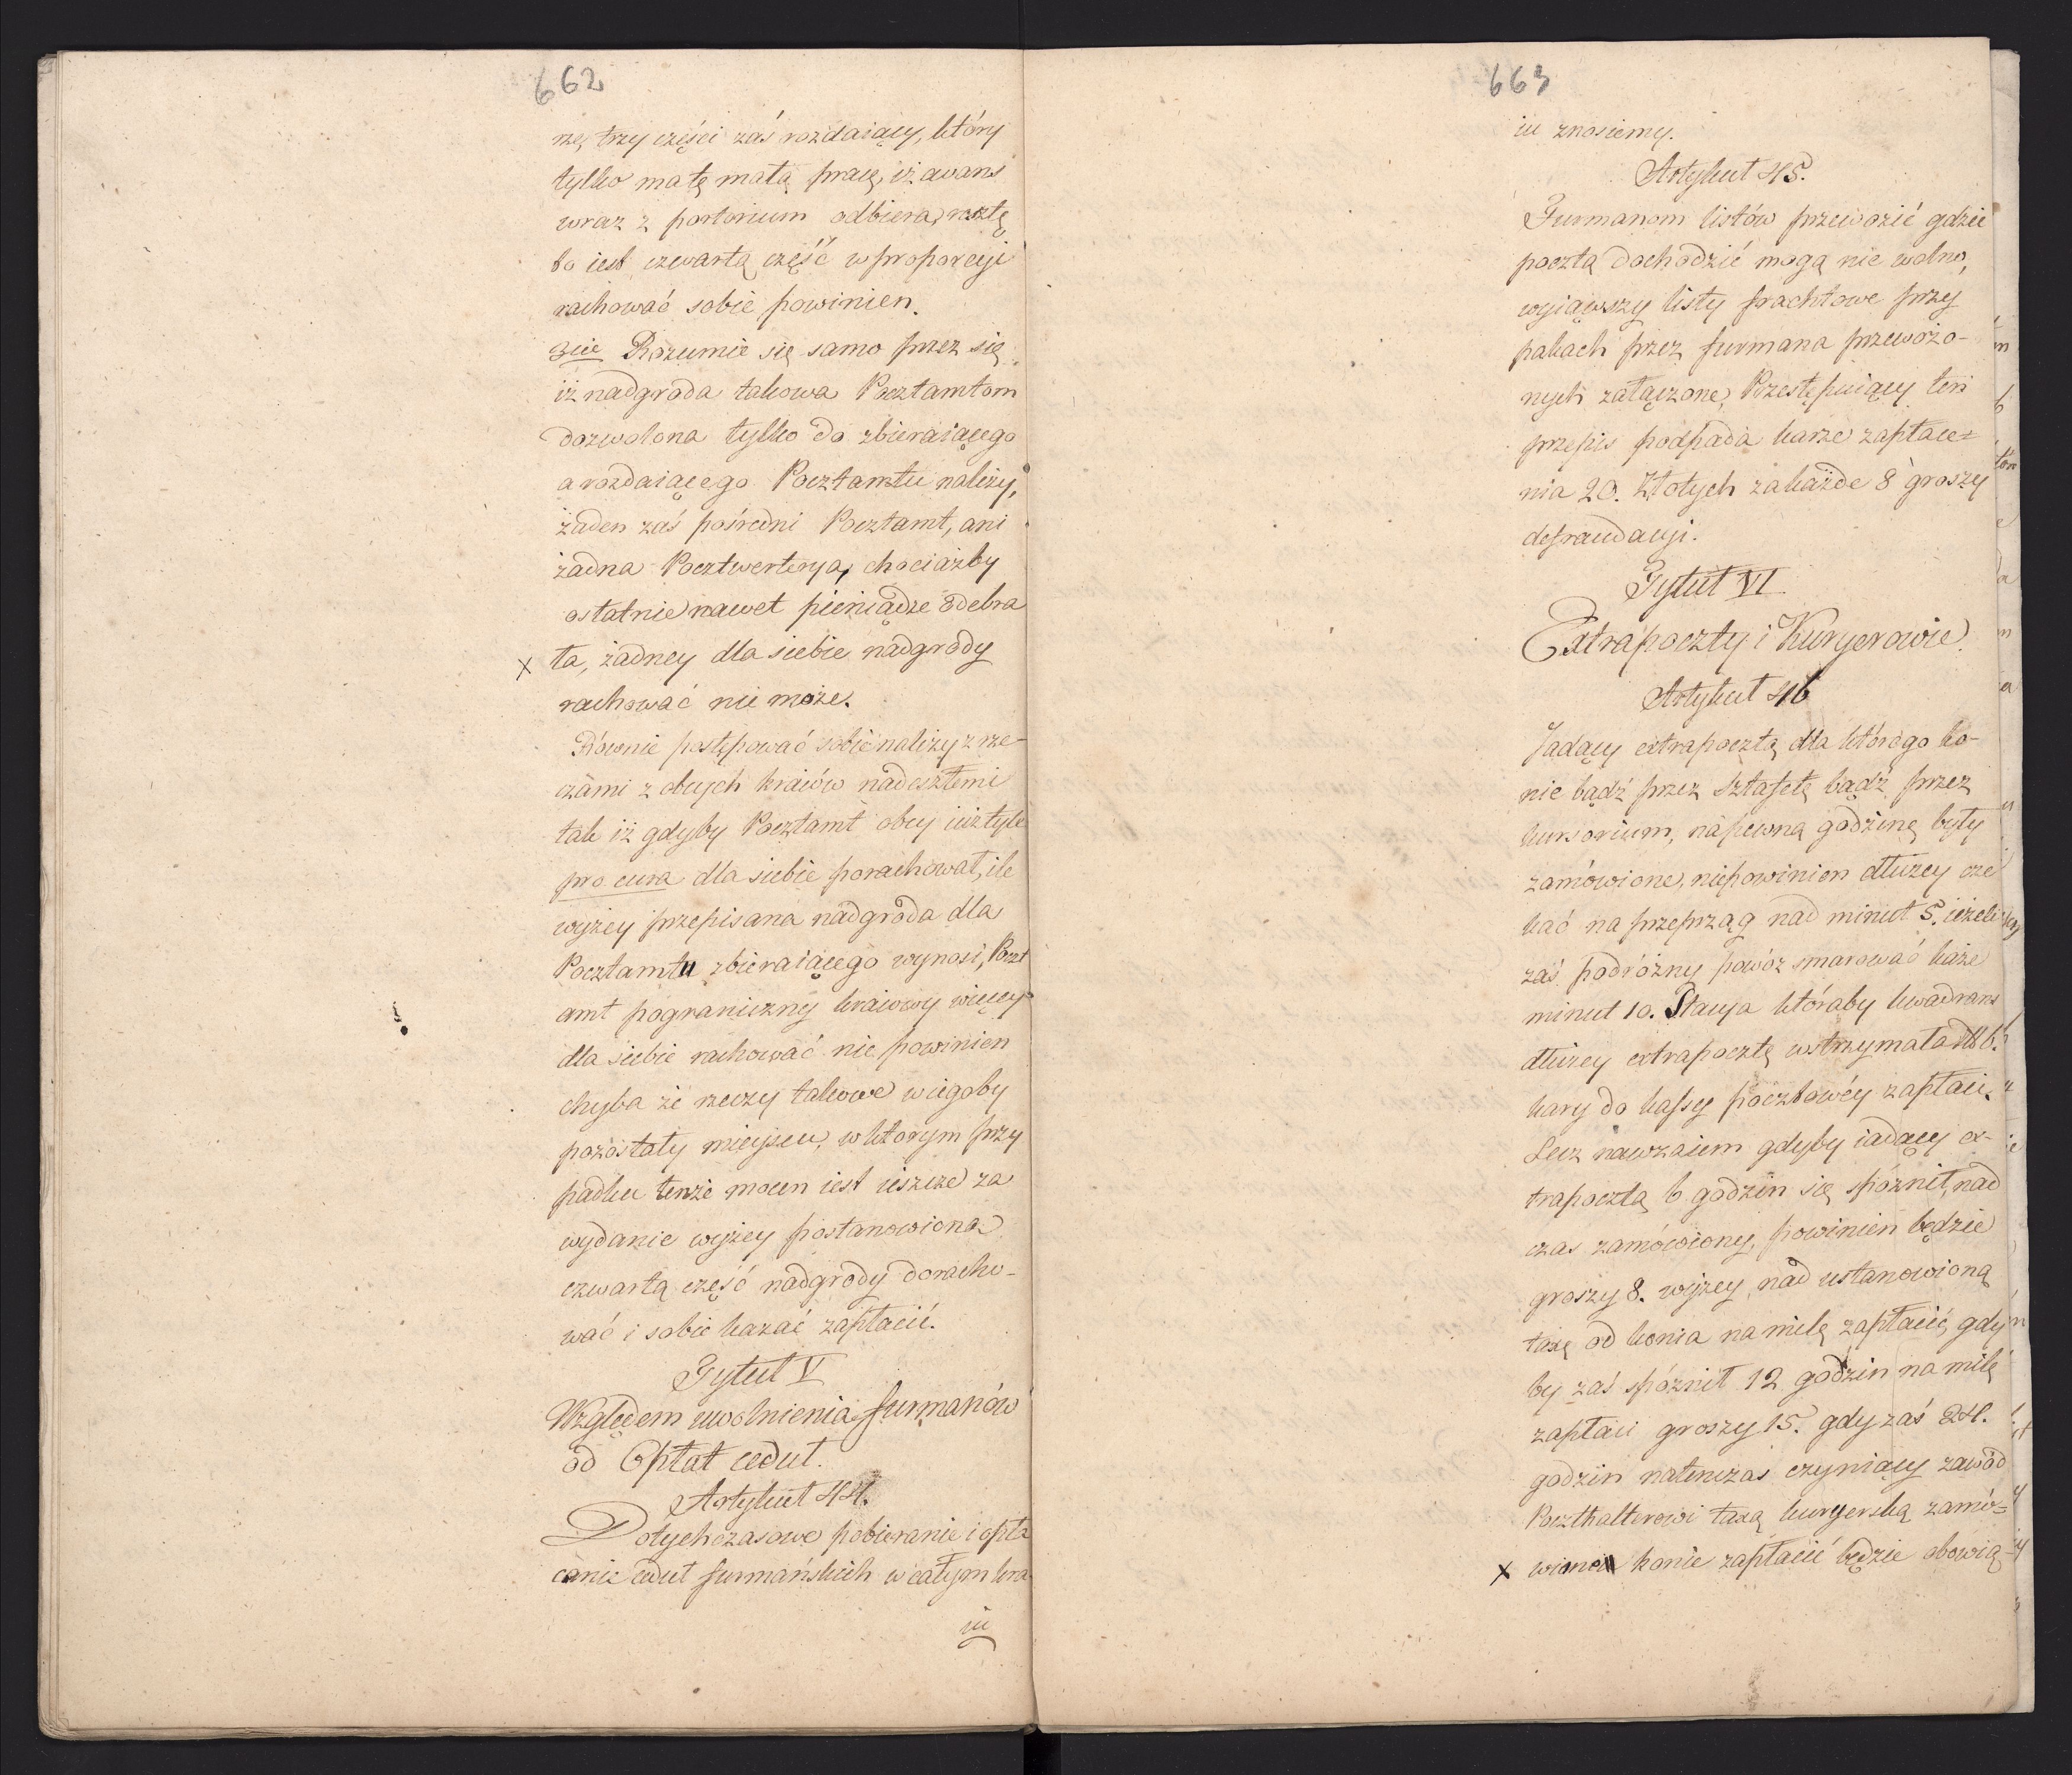 662
rze, trzy części zaś rozdaiący, który
tylko matę małą pracę, iż awans
wraz z portorium odbiera, resztę
to iest czwartą część w proporcyi
rachować sobie powinien.
3cie Rozumie się samo przez się
iż nadgroda takowa Pocztamtom
dozwolona tylko do zbieraiącego
a rozdaiącego Pocztamtu należy,
żaden zaś pośredni Pocztamt, ani
żadna Pocztwerterya, chociażby
ostatnie nawet pieniądze odebra
x ła, żadney dla siebie nadgrody
rachować nie może.
Równie postępować sobie należy z rze-
czami z obcych kraiów nadeszłemi
tak iż gdyby Pocztamt obcy iuż tyle
pro cura dla siebie porachował, ile
wyżey przepisana nadgroda dla
Pocztamtu zbieraiącego wynosi, Poczt
amt pograniczny kraiowy więcey
dla siebie rachować nie powinien
chyba że rzeczy takowe w iegoby
pozostały mieyscu, w ktorym przy
padku tenże mocen iest ieszcze za
wydanie wyżey postanowioną
czwartą część nadgrody doracho-
wać i sobie kazać zapłacić.
Tytuł V
Względem uwolnienia furmanów
od Opłat ceduł.
Artykuł 44.
Dotychczasowe pobieranie i opła
canie ceduł furmańskich w całym kra
iu
663
iu znosiemy.
Artykuł 45.
Furmanom listów przewozić gdzie
pocztą dochodzić mogą nie wolno,
wyiąwszy listy frachtowe przy
pakach przez furmana przewożo-
nych załączone, Przestępuiący ten
przepis podpada karze zapłace=
nia 20. Złotych za każde 8 groszy
defraudacyi.
Tytuł VI
Extrapoczty i Kuryerowie.
Artykuł 46
Jadący extrapocztą dla którego ko-
nie bądź przez sztafetę bądź przez
kursorium, na pewną godzinę były
zamówione, niepowinien dłużey cze
kać na przeprząg nad minut 5. ieżeli
zaś podróżny powóz smarować każe
minut 10. Stacya któraby kwadrans
dłużey extrapocztę wstrzymała 6.
kary do kassy pocztowéy zapłaci.
Lecz nawzaiem gdyby iadący ex-
trapocztą 6 godzin się spóźnił, nad
czas zamówiony, powinien będzie
groszy 8. wyżey nad ustanowioną
taxę od konia na milę zapłacić, gdy
by zaś spóźnił 12 godzin na milę
zapłaci groszy 15. gdy zaś 24.
godzin natenczas czyniący zawód
Poczthalterowi taxą kuryerską zamó=
x wione konie zapłacić będzie obowią